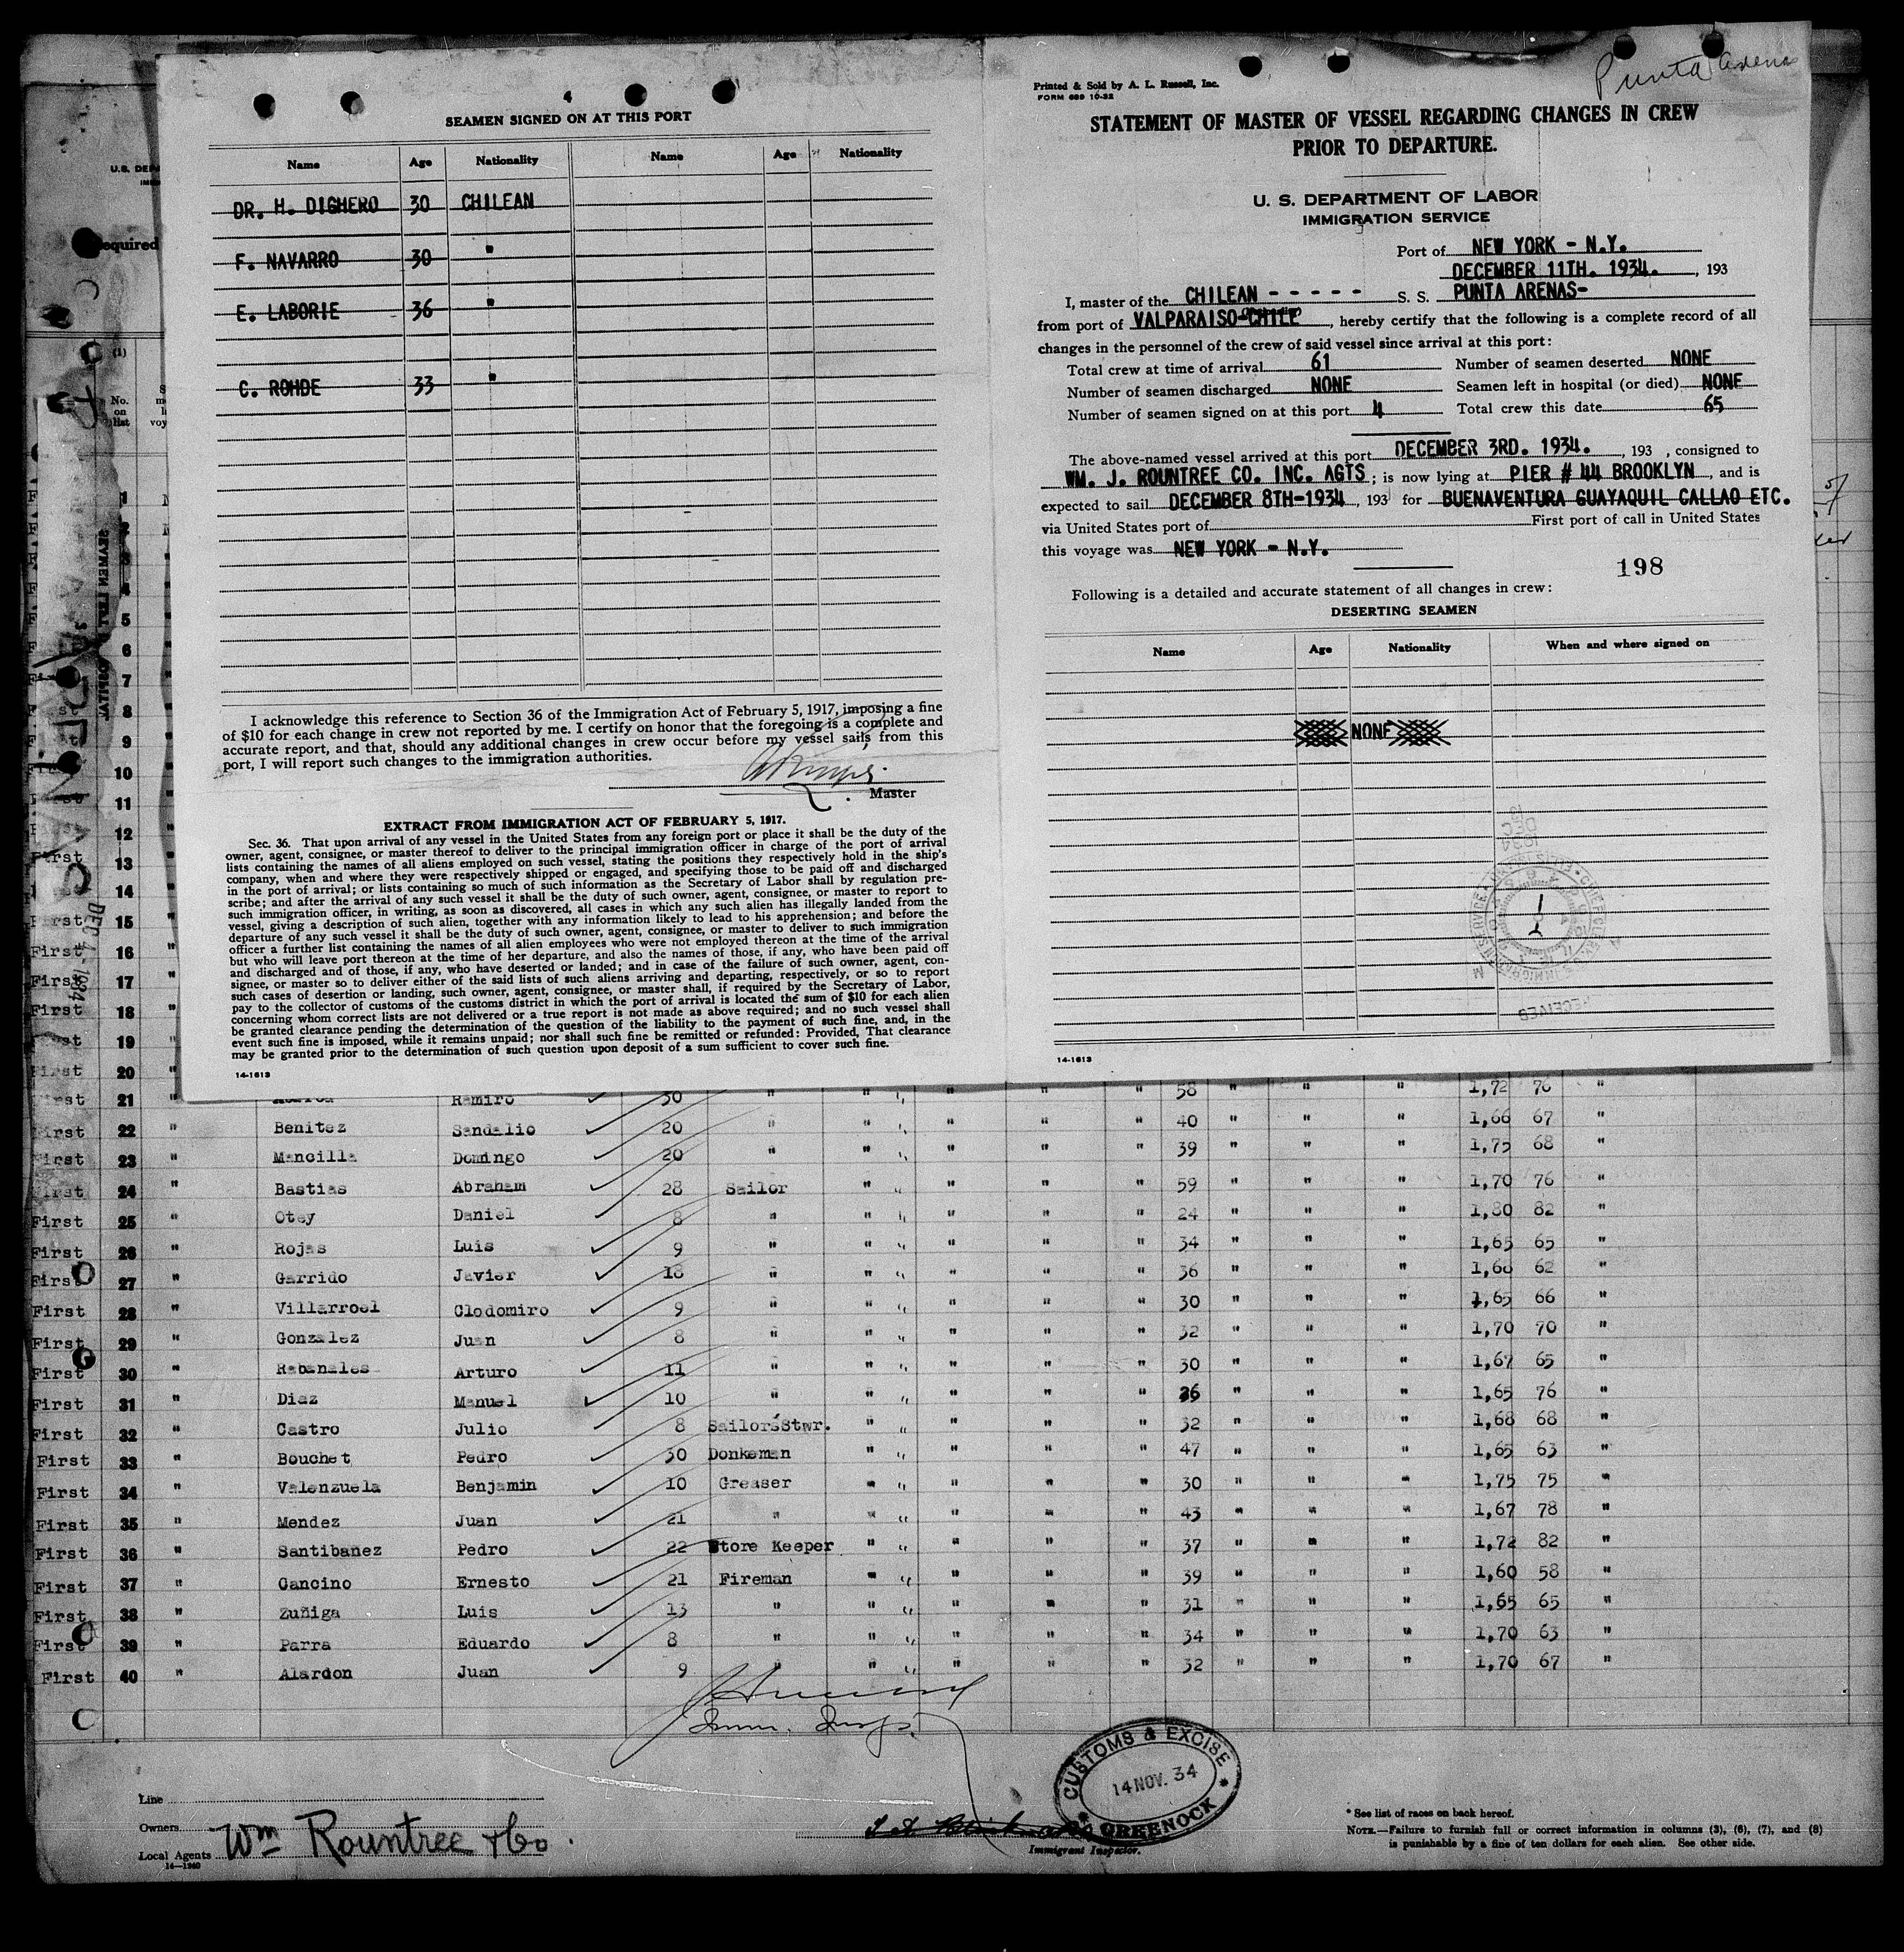 4
SEAMEN SIGNED ON AT THIS PORT
Name Age Nationality Name Age Nationality
DR. H. DIGHERO 30 CHILEAN
F. NAVARRO 30 "
E. LABORIE 36 "
C. ROHDE 33 "
I acknowledge this reference to Section 36 of the Immigration Act of February 5, 1917, imposing a fine
of $10 for each change in crew not reported by me. I certify on honor that the foregoing is a complete and
accurate report, and that, should any additional changes in crew occur before my vessel sails from this
port, I will report such changes to the immigration authorities.
Master
EXTRACT FROM IMMIGRATION ACT OF FEBRUARY 5, 1917.
Sec. 36. That upon arrival of any vessel in the United States from any foreign port or place it shall be the duty of the
owner, agent, consignee, or master thereof to deliver to the principal immigration officer in charge of the port of arrival
lists containing the names of all aliens employed on such vessel, stating the positions they respectively hold in the ship's
company, when and where they were respectively shipped or engaged, and specifying those to be paid off and discharged
in the port of arrival; or lists containing so much of such information as the Secretary of Labor shall by regulation pre-
scribe; and after the arrival of any such vessel it shall be the duty of such owner, agent, consignee, or master to report to
such immigration officer, in writing, as soon as discovered, all cases in which any such alien has illegally landed from the
vessel, giving a description of such alien, together with any information likely to lead to his apprehension; and before the
departure of any such vessel it shall be the duty of such owner, agent, consignee, or master to deliver to such immigration
officer a further list containing the names of all alien employees who were not employed thereon at the time of the arrival
but who will leave port thereon at the time of her departure, and also the names of those, if any, who have been paid off
and discharged and of those, if any, who have deserted or landed; and in case of the failure of such owner, agent, con-
signee, or master so to deliver either of the said lists of such aliens arriving and departing, respectively, or so to report
such cases of desertion or landing, such owner, agent, consignee, or master shall, if required by the Secretary of Labor,
pay to the collector of customs of the customs district in which the port of arrival is located the sum of $10 for each alien
concerning whom correct lists are not delivered or a true report is not made as above required; and no such vessel shall
be granted clearance pending the determination of the question of the liability to the payment of such fine, and, in the
event such fine is imposed, while it remains unpaid; nor shall such fine be remitted or refunded: Provided, That clearance
may be granted prior to the determination of such question upon deposit of a sum sufficient to cover such fine.
14-1613
Punta Arenas
Printed & Sold by A. L. Russell, Inc.
FORM 689 10-32
STATEMENT OF MASTER OF VESSEL REGARDING CHANGES IN CREW
PRIOR TO DEPARTURE.
U. S. DEPARTMENT OF LABOR
IMMIGRATION SERVICE
Port of NEW YORK - N.Y.
DECEMBER 11TH. 1934. , 193
I, master of the CHILEAN - - - - - S. S. PUNTA ARENAS-
from port of VALPARAISO-CHILE , hereby certify that the following is a complete record of all
changes in the personnel of the crew of said vessel since arrival at this port:
Total crew at time of arrival 61 Number of seamen deserted NONE
Number of seamen discharged NONE Seamen left in hospital (or died) NONE
Number of seamen signed on at this port 4 Total crew this date 65
The above-named vessel arrived at this port DECEMBER 3RD. 1934. , 193 , consigned to
WM. J. ROUNTREE CO. INC. AGTS ; is now lying at PIER # 44 BROOKLYN , and is
expected to sail DECEMBER 8TH-1934 , 193 for BUENAVENTURA GUAYAQUIL CALLAO ETC.
via United States port of First port of call in United States
this voyage was NEW YORK - N.Y.
198
Following is a detailed and accurate statement of all changes in crew:
DESERTING SEAMEN
Name Age Nationality When and where signed on
NONE
RECEIVED
14-1613
(1)
No.
on
list
1
2
3
4
5
6
7
8
9
10
11
12
First 13
14
First 15
First 16 "
First 17 "
First 18 "
19 "
20 "
First 21 " Ramiro 30 " " " " 58 " " " 1,72 76 "
First 22 " Benitez Sandalio 20 " " " " " " 40 " " " 1,66 67 "
First 23 " Mancilla Domingo 20 " " " " " " 39 " " " 1,75 68 "
First 24 " Bastias Abraham 28 Sailor " " " " " 59 " " " 1,70 76 "
First 25 " Otey Daniel 8 " " " " " " 24 " " " 1,80 82 "
First 26 " Rojas Luis 9 " " " " " " 34 " " " 1,65 65 "
First 27 " Garrido Javier 18 " " " " " " 36 " " " 1,68 62 "
First 28 " Villarroel Clodomiro 9 " " " " " " 30 " " " 1,65 66 "
First 29 " Gonzalez Juan 8 " " " " " " 32 " " " 1,70 70 "
First 30 " Rabanales Arturo 11 " " " " " " 30 " " " 1,67 65 "
First 31 " Diaz Manuel 10 " " " " " " 36 " " " 1,65 76 "
First 32 " Castro Julio 8 Sailors'Stwr. " " " " " 32 " " " 1,68 68 "
First 33 " Bouchet Pedro 30 Donkeman " " " " " 47 " " " 1,65 63 "
First 34 " Valenzuela Benjamin 10 Greaser " " " " " 30 " " " 1,75 75 "
First 35 " Mendez Juan 21 " " " " " " 43 " " " 1,67 78 "
First 36 " Santibañez Pedro 22 Store Keeper " " " " " 37 " " " 1,72 82 "
First 37 " Cancino Ernesto 21 Fireman " " " " " 39 " " " 1,60 58 "
First 38 " Zuñiga Luis 13 " " " " " " 31 " " " 1,65 65 "
First 39 " Parra Eduardo 8 " " " " " " 34 " " " 1,70 63 "
First 40 " Alardon Juan 9 " " " " " " 32 " " " 1,70 67 "
Imm. Insp.
CUSTOMS & EXCISE
14 NOV. 34
GREENOCK
Line
Owners
Local Agents Wm Rountree & Co.
14-1240
Immigrant Inspector.
* See list of races on back hereof.
NOTE.—Failure to furnish full or correct information in columns (3), (6), (7), and (8)
is punishable by a fine of ten dollars for each alien. See other side.